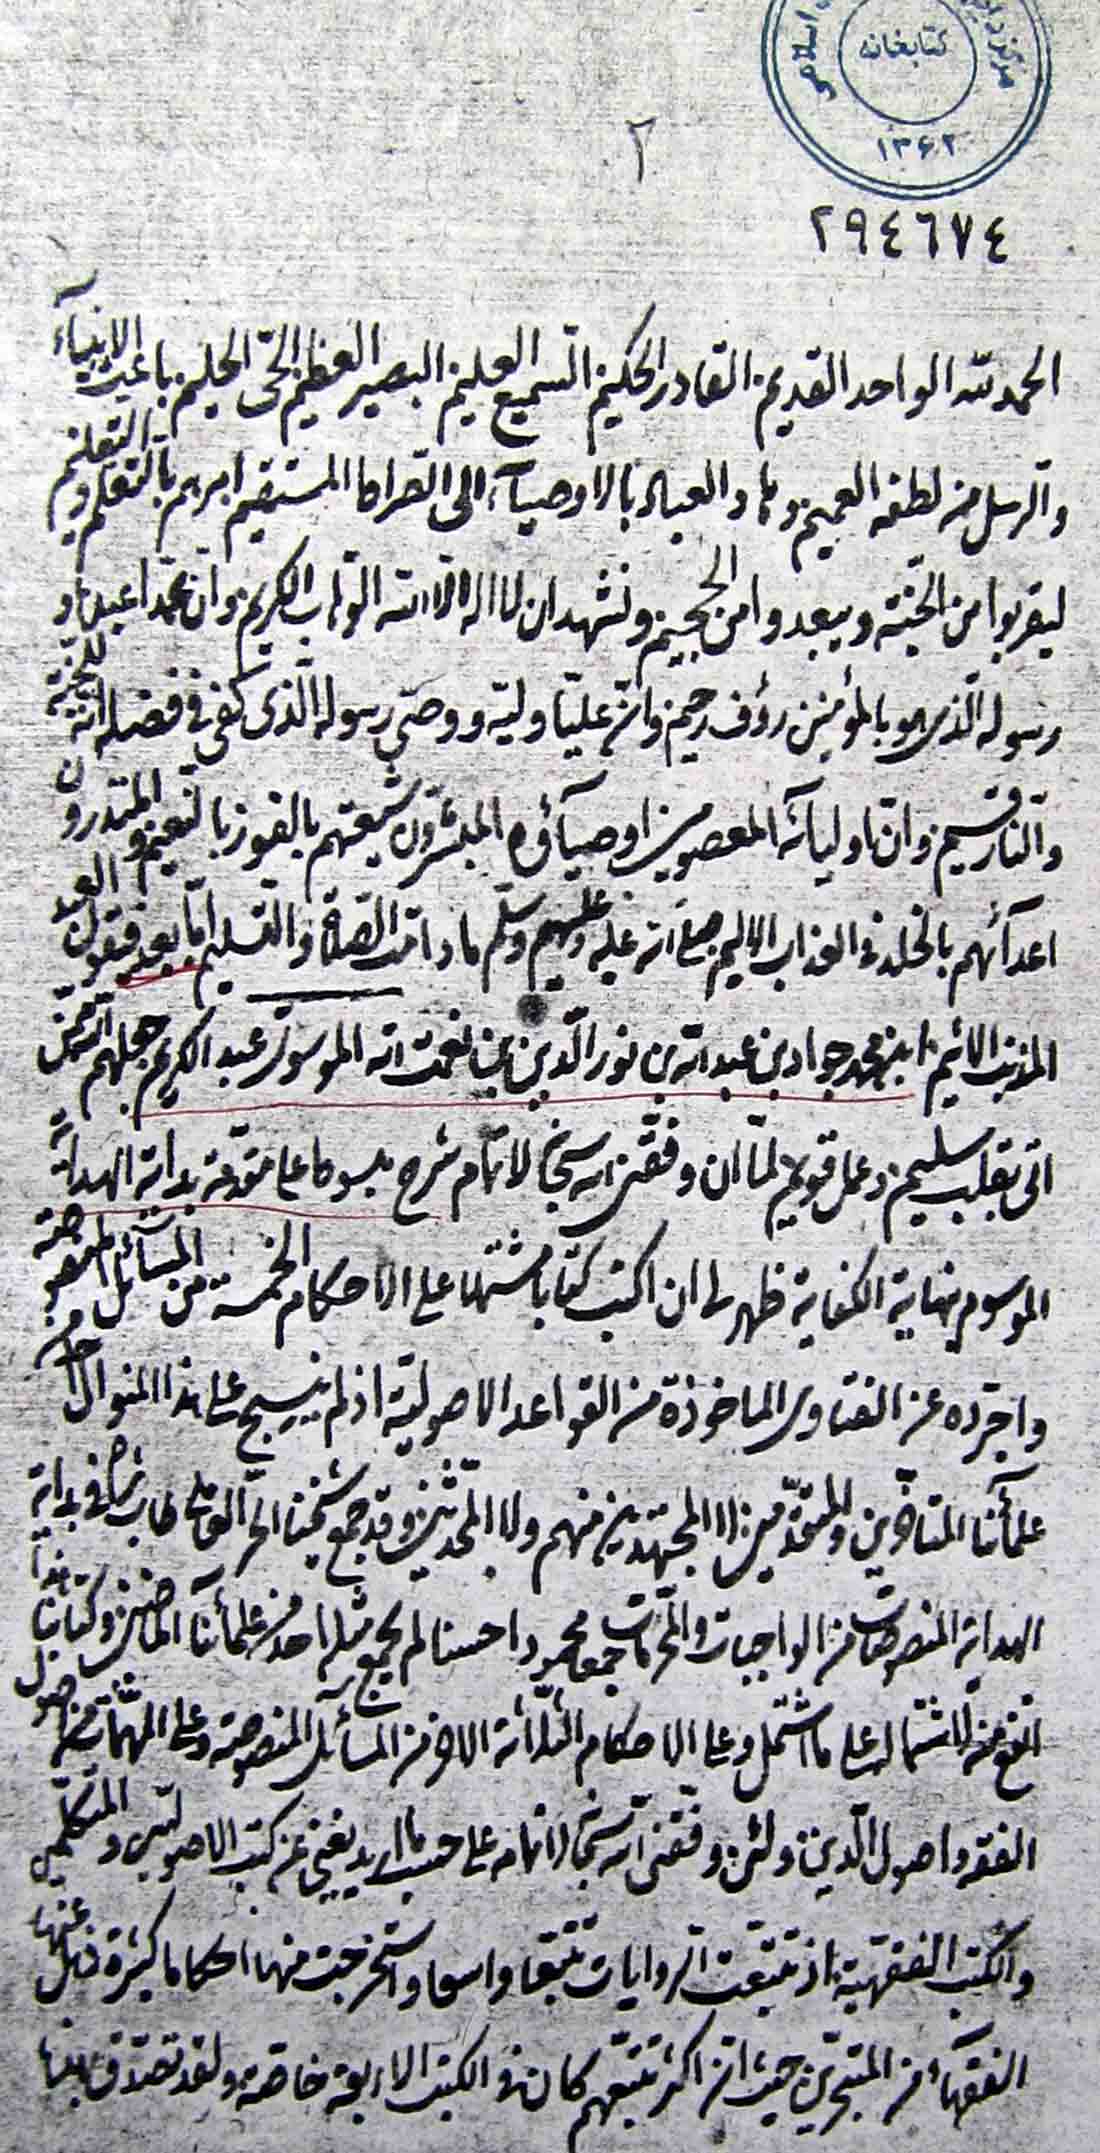 کتابخانه
۱۳۶۲
٢
٢٩٤٦٧٤
الحمد لله الواحد القديم القادر الحكيم السميع العليم البصير العظيم الحى الحليم باعث الانبيآء
والرسل من لطفه العميم وهاد العباد بالاوصيآء الى الصراط المستقيم امرهم بالتعلم والتعليم
ليقربوا من الجنة ويبعدوا من الجحيم ونشهد ان لا اله الا الله التواب الكريم وان محمدا عبده و
رسوله الذى هو بالمؤمنين رؤف رحيم وان عليا وليه ووصى رسوله الذى كفى فى فضله انه للجنة
والنار قسيم وان اوليآئه المعصومين اوصيآؤه المبشرون شيعتهم بالفوز بالنعيم والمنذرون
اعدآئهم بالخلد فى العذاب الاليم صلى الله عليه وعليهم وسلم ما دامت الصلاة والتسليم اما بعد فيقول العبد
المذنب الاثيم ابن محمد جواد بن عبد الله بن نور الدين بن نعمت الله الموسوى عبد الكريم جعلهم الله ممن
اتى بقلب سليم وعمل قويم لما ان وفقنى الله سبحانه لاتمام شرح مبسوط على مقدمة بداية الهداية
الموسوم بنهاية الكفاية ظهر لى ان اكتب كتابا مشتملا على الاحكام الخمسة من المسائل المنصوصة
واجرده عن الفتاوى الماخوذة من القواعد الاصولية اذ لم ينسج على هذا المنوال احد من
علمآئنا المتاخرين والمتقدمين لا المجتهدين منهم ولا المحدثين وقد جمع شيخنا الحر العاملى طاب ثراه فى بداية
الهداية المنصوصات من الواجبات والمحرمات جمعا محمودا حسنا لم يجمع مثله احد من علمآئنا الماضين وكتابنا هذا
انفع منه لاشتماله على ما اشتمل وعلى الاحكام الثلاثة الاخر من المسائل المنصوصة وعلى المهمات من اصول
الفقه واصول الدين ولئن وفقنى الله سبحانه لاتمامه على حسب ما اريد يغنى عن كتب الاصوليين والمتكلمين
والكتب الفقهية اذ تتبعت الروايات تتبعا واسعا واستخرجت منها احكاما كثيرة ذهل عنها
الفقهآء من المتبحرين حيث ان اكثر تتبعهم كان فى الكتب الاربعة خاصة ولقد تصدق